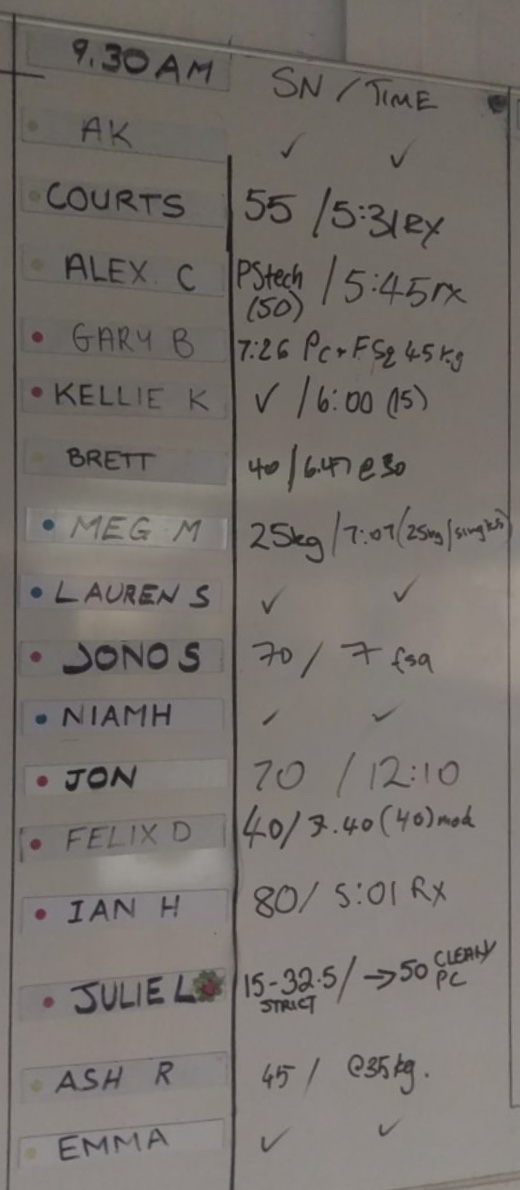 9.30AM SN / TIME
AK ✓ ✓
COURTS 55 / 5:31 RX
ALEX. C PStech (50) / 5:45 rx
GARY B 7:26 PC + FSq 45kg
KELLIE K ✓ / 6:00 (15)
BRETT 40 / 6.47 @ 30
MEG M 25kg / 7:07 (25kg/singles)
LAUREN S ✓ ✓
JONO S 70 / 7 fsq
NIAMH ✓ ✓
JON 70 / 12:10
FELIX D 40 / 7.40 (40) mod
IAN H 80 / 5:01 RX
JULIE L 15-32.5 / → 50 CLEAN/
STRICT PC
ASH R 45 / @35kg.
EMMA ✓ ✓